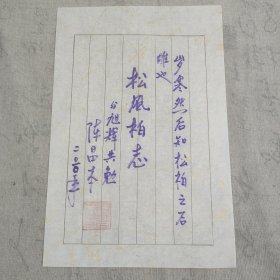 岁寒然后知松柏之后
雕也
松风柏志
与旭辉共勉
陈昊苏
二〇〇五年